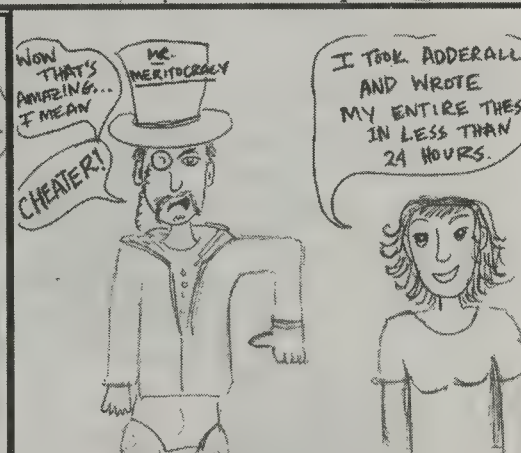 WOW
THAT'S
AMAZING...
I MEAN
CHEATER!
MR.
MERITOCRACY
I TOOK ADDERALL
AND WROTE
MY ENTIRE THES
IN LESS THAN
24 HOURS.